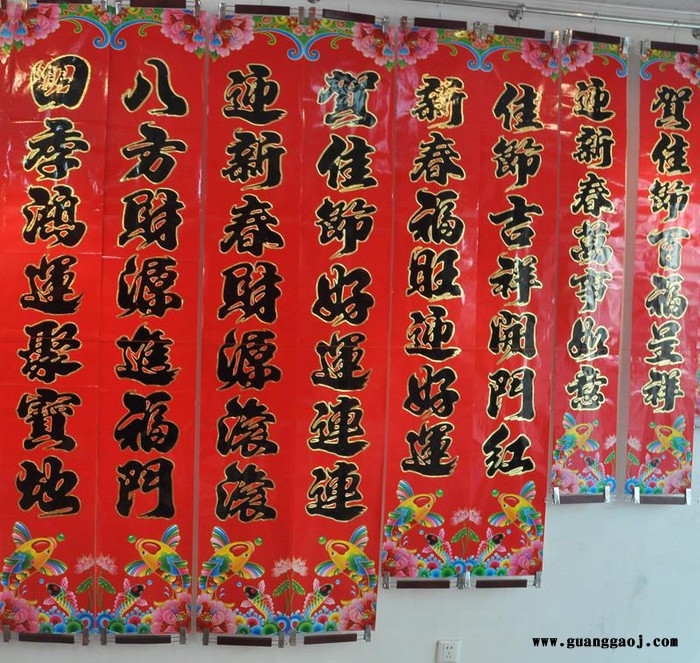 賀佳節百福呈祥
迎新春萬事如意
佳節吉祥開門紅
新春福旺迎好運
賀佳節好運連連
迎新春財源滾滾
八方財源進福門
四季鴻運聚寶地
www.guanggaoj.com